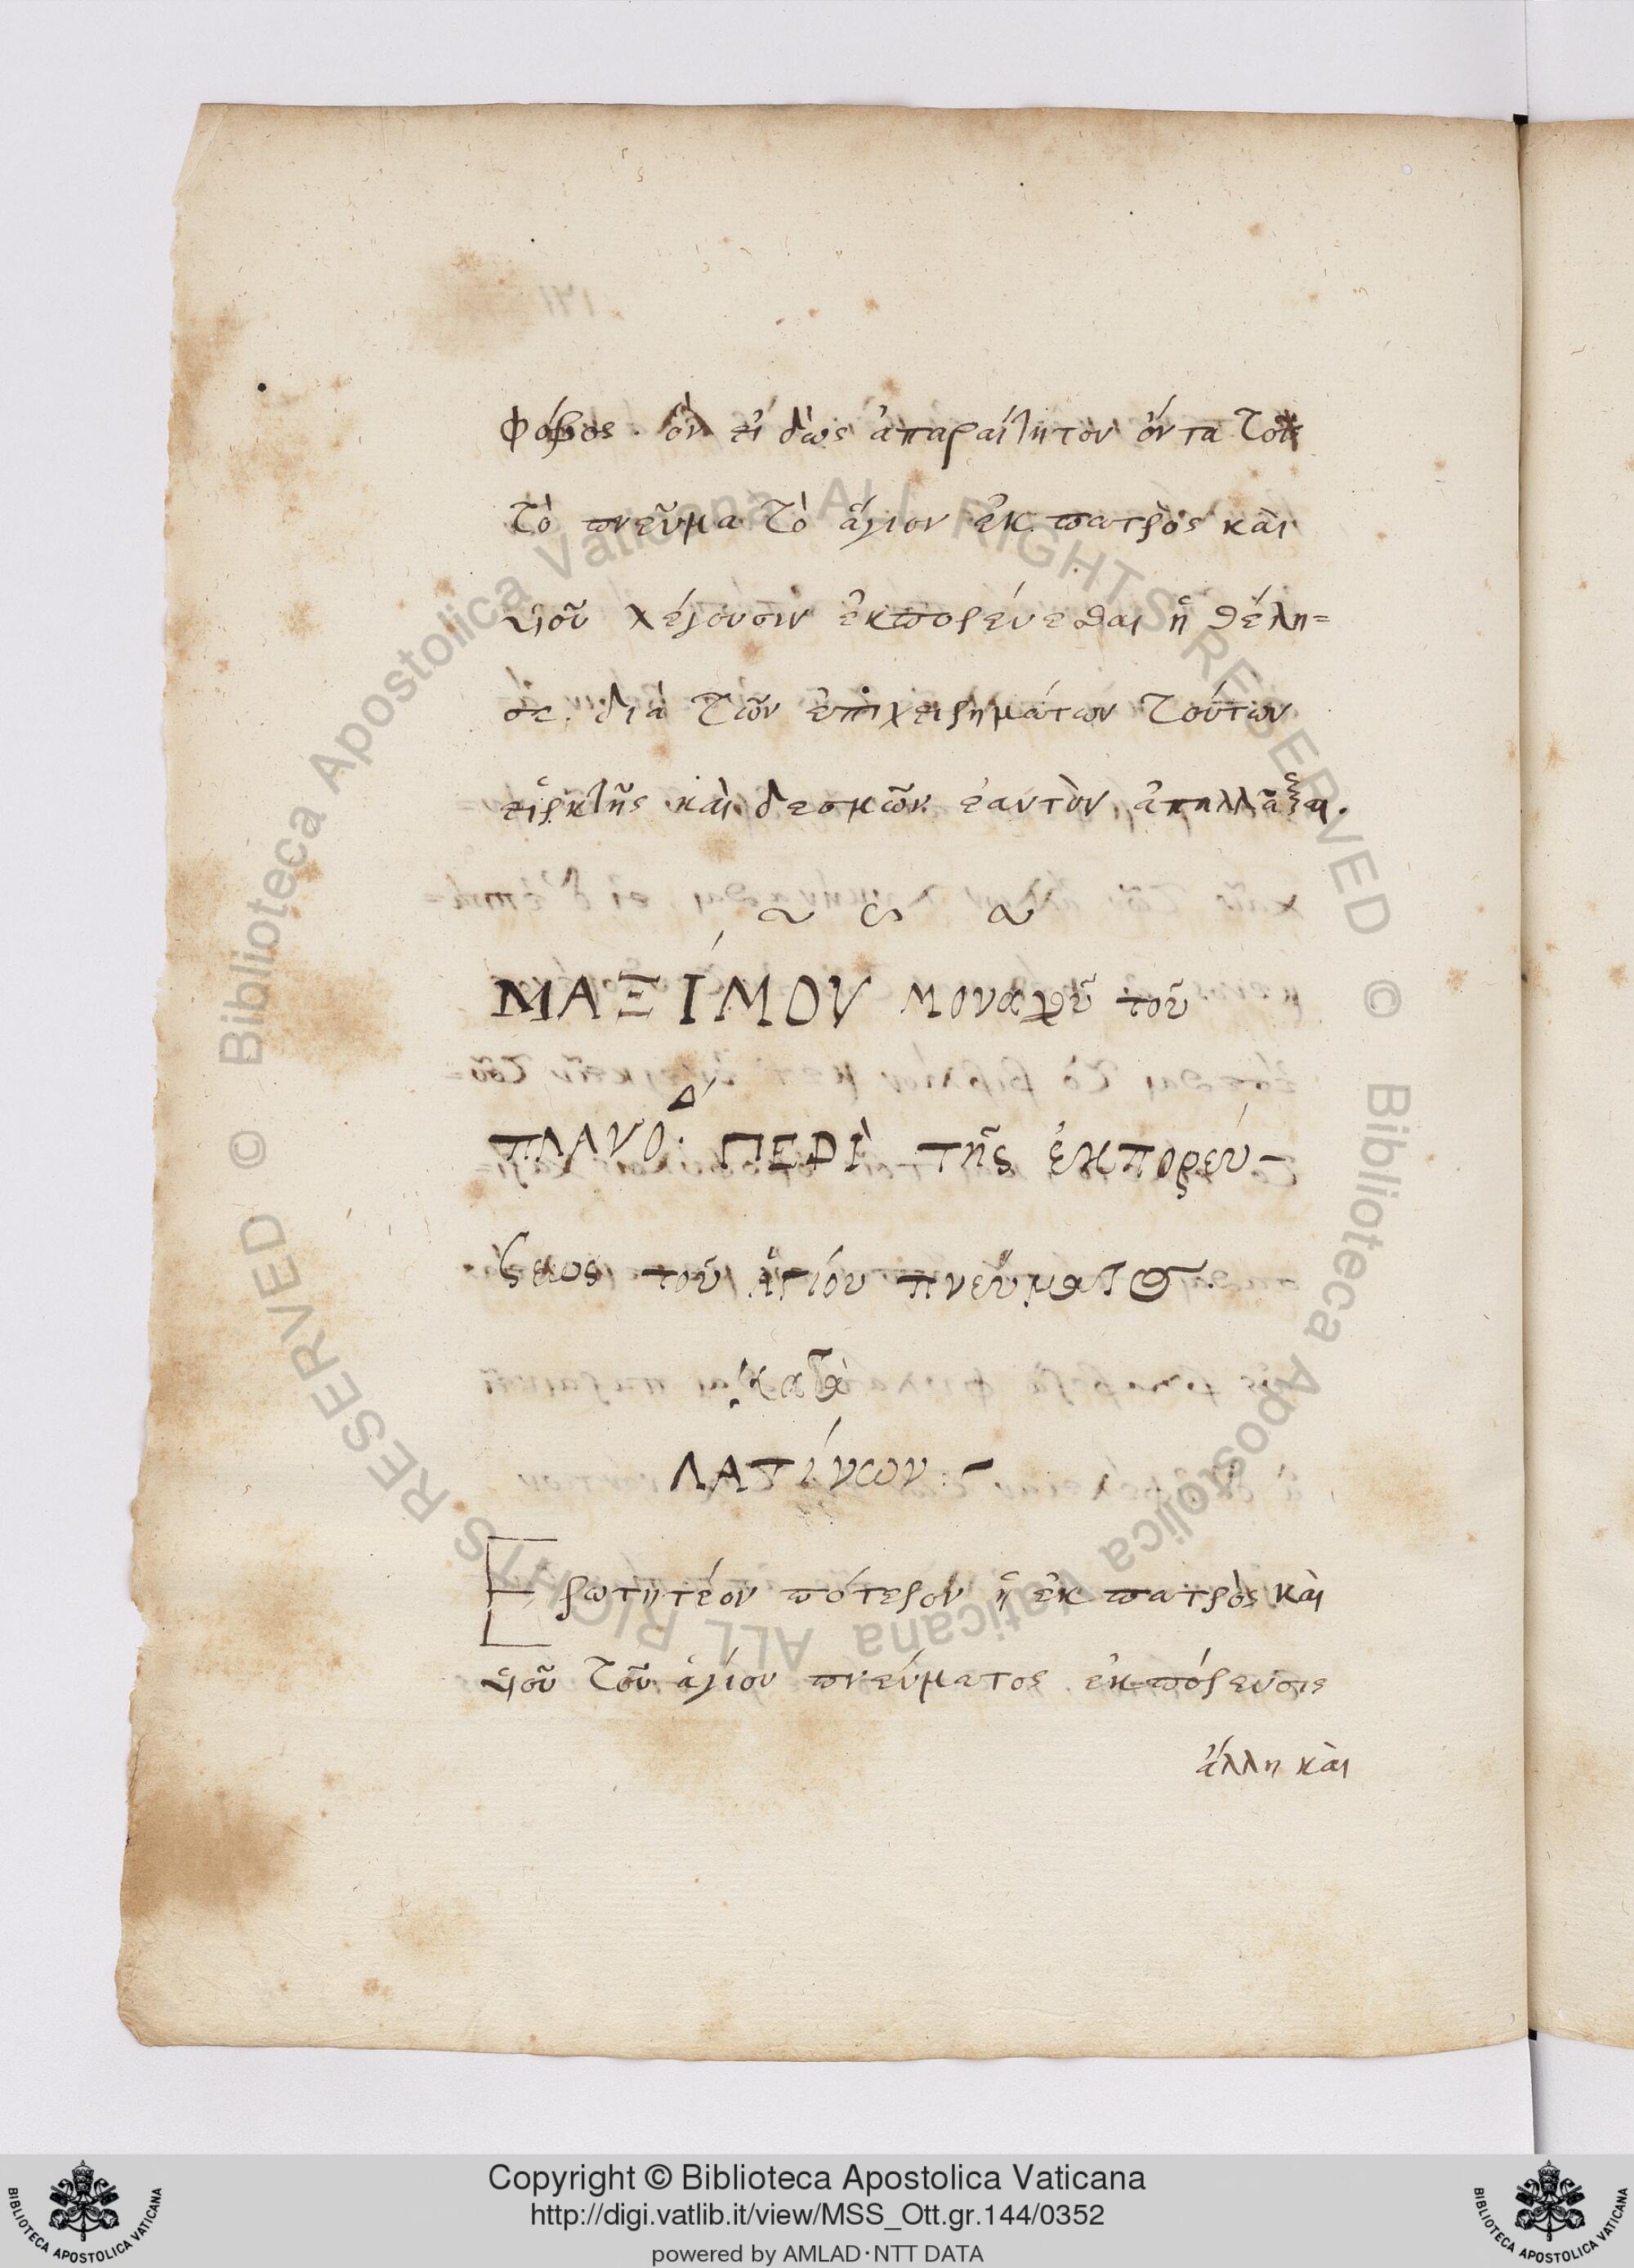 φόβος. ὃν εἰδὼς ἀπαραίτητον ὄντα τοῖς
τὸ πνεῦμα τὸ ἅγιον ἐκ πατρὸς καὶ
υἱοῦ λέγουσιν ἐκπορεύεσθαι ἠθέλη=
σε. διὰ τῶν ἐπιχειρημάτων τούτων
εἱρκτῆς καὶ δεσμῶν ἑαυτὸν ἀπαλλάξαι.
ΜΑΞΊΜΟΥ μοναχοῦ τοῦ
ΠΛΑΝΟΔ· ΠΕΡῚ τῆς ἐκπορεύ-
σεως τοῦ ἁγίου πνεύματος
κατὰ
ΛΑΤίνων:-
Ἐρωτητέον πότερον ἡ ἐκ πατρὸς καὶ
υἱοῦ τοῦ ἁγίου πνεύματος ἐκπόρευσις
ἄλλη καὶ
Copyright © Biblioteca Apostolica Vaticana
http://digi.vatlib.it/view/MSS_Ott.gr.144/0352
powered by AMLAD·NTT DATA
BIBLIOTECA APOSTOLICA VATICANA
BIBLIOTECA APOSTOLICA VATICANA
© Biblioteca Apostolica Vaticana ALL RIGHTS RESERVED © Biblioteca Apostolica Vaticana ALL RIGHTS RESERVED